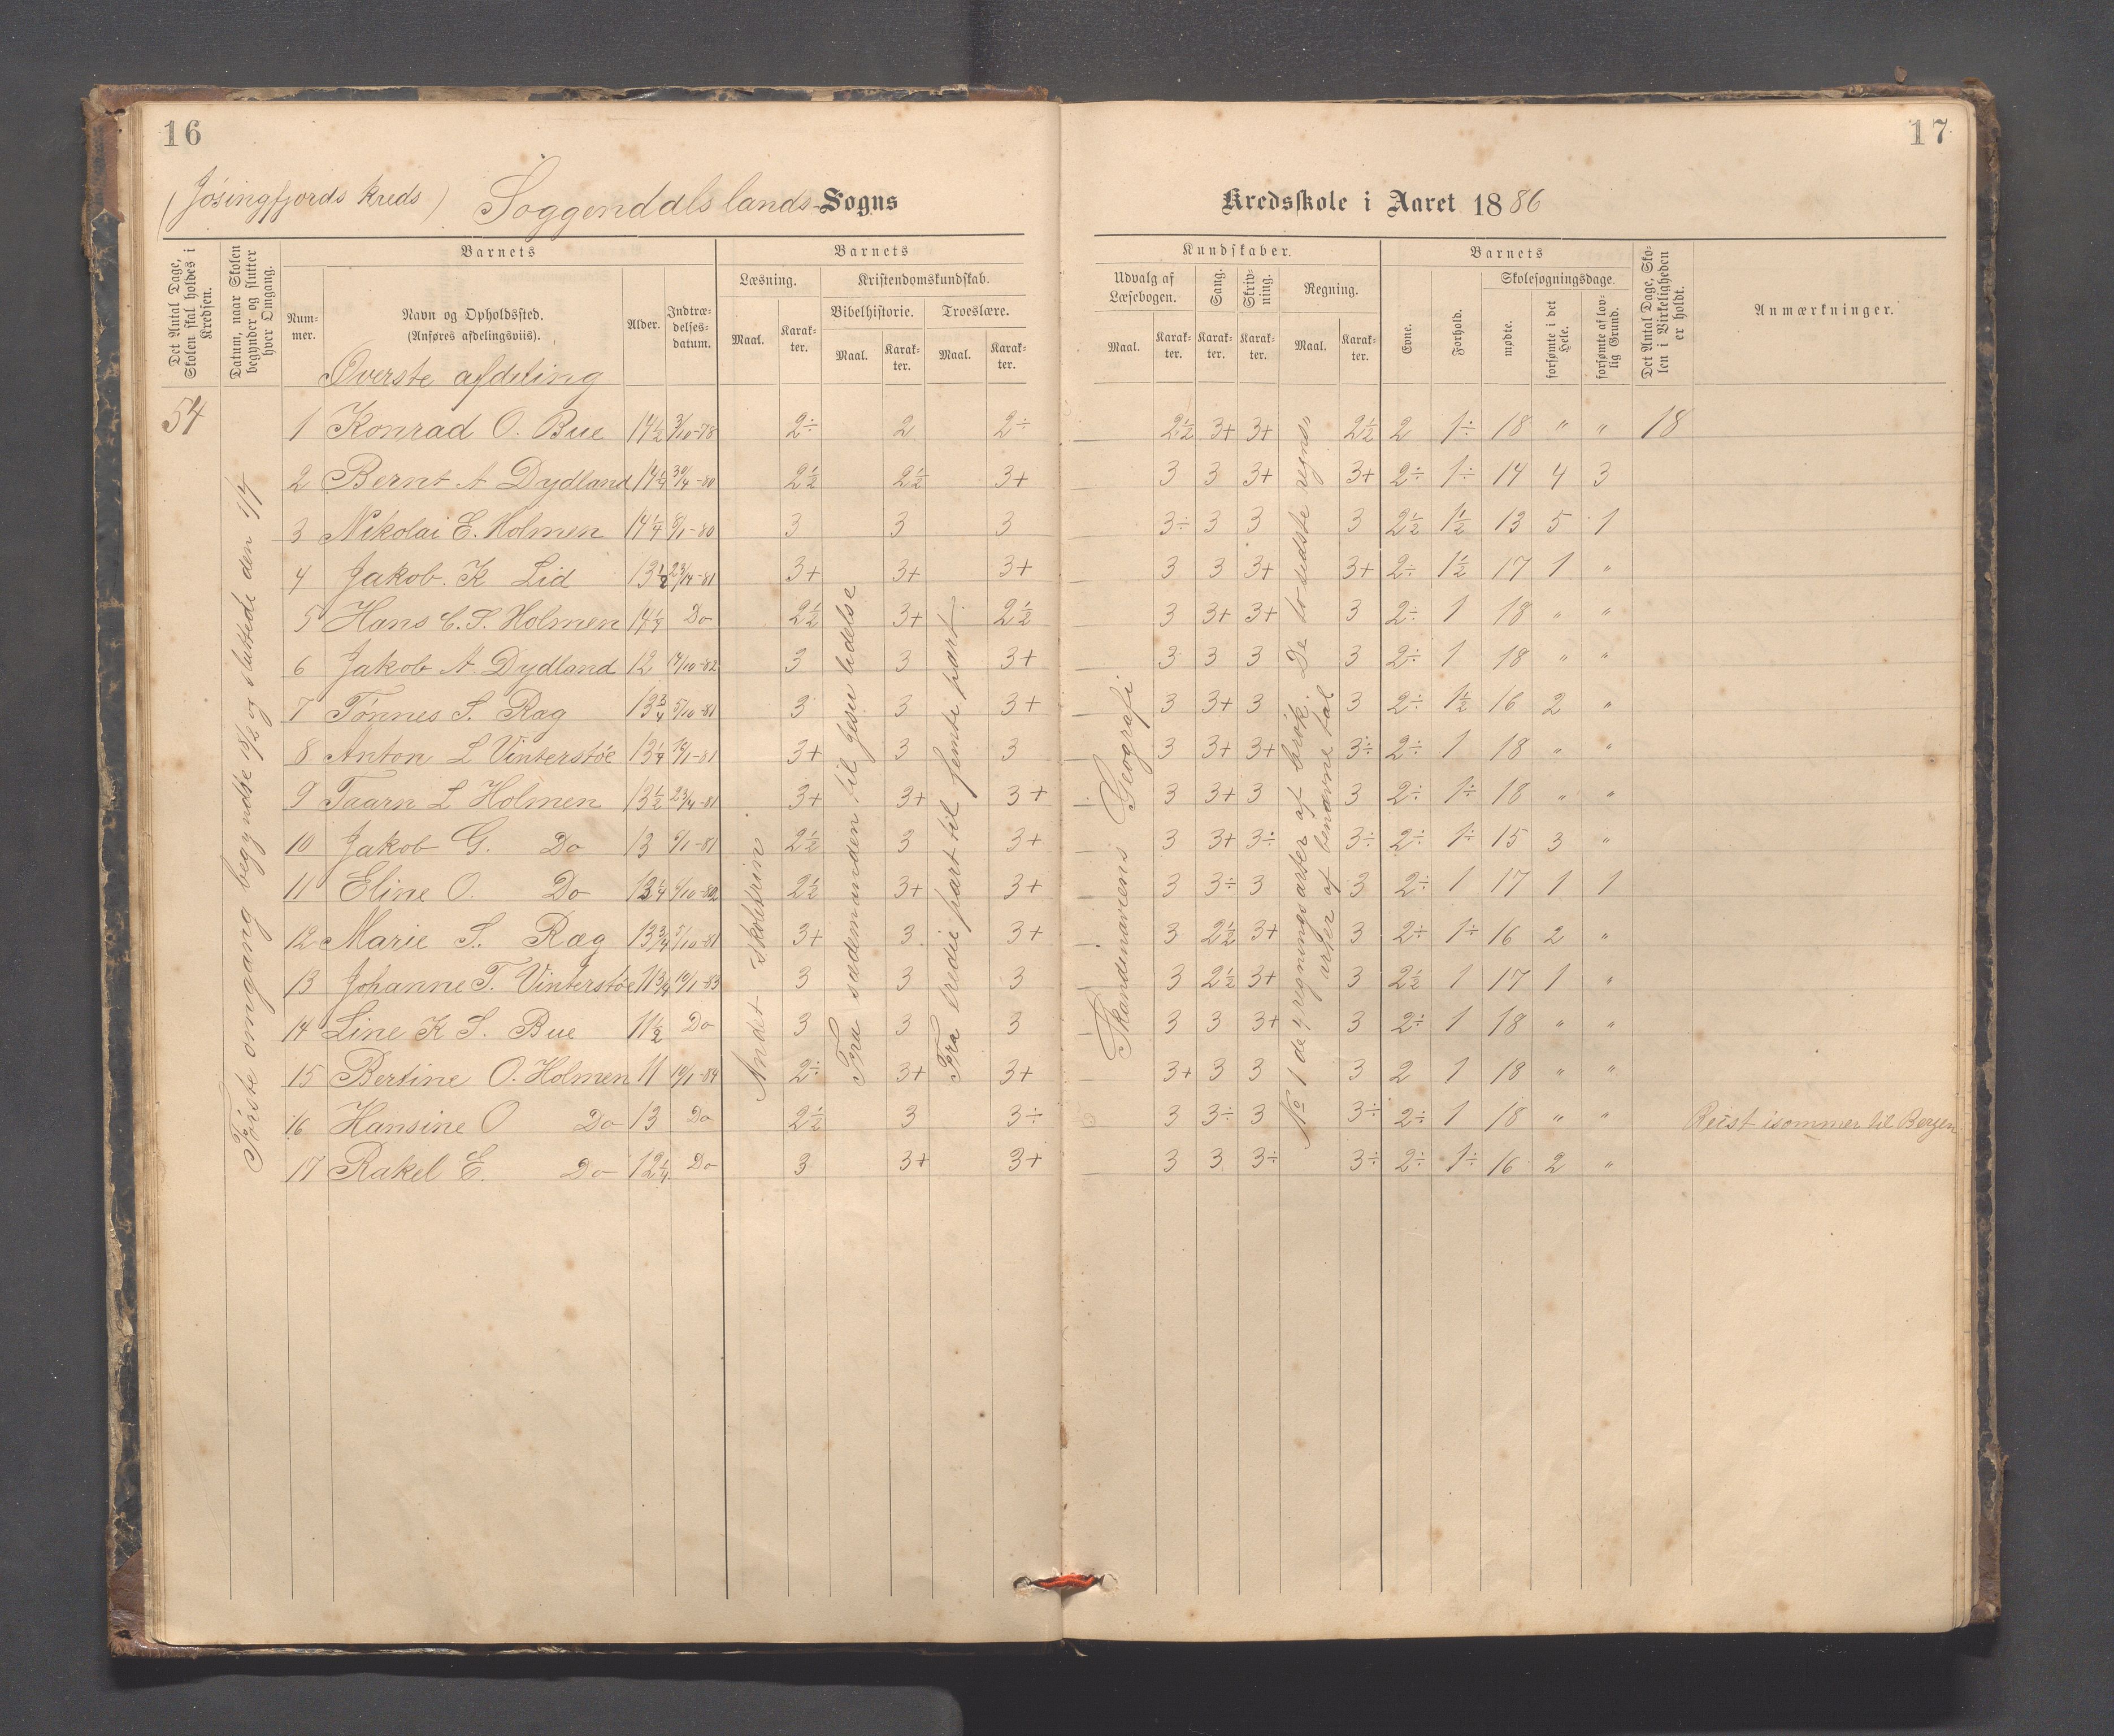 16
17
(Jøsingfjords kreds) Soggendals lands-Sogns
Kredsskole i Aaret 1886
Det Antal Dage, Skolen skal holdes i Kredsen.
Datum, naar Skolen begynder og slutter hver Omgang.
Barnets
Num-mer.
Navn og Opholdssted. (Anføres afdelingsviis).
Alder.
Indtræ-delses-datum.
Barnets
Læsning.
Kristendomskundskab.
Bibelhistorie.
Troeslære.
Maal.
Karak-ter.
Maal.
Karak-ter.
Maal.
Karak-ter.
Kundskaber.
Udvalg af Læsebogen.
Sang.
Skriv-ning.
Regning.
Maal.
Karak-ter.
Karak-ter.
Karak-ter.
Maal.
Karak-ter.
Barnets
Evne.
Forhold.
Skolesøgningsdage.
mødte.
forsømte i det Hele.
forsømte af lov-lig Grund.
Det Antal Dage, Sko-len i Virkeligheden er holdt.
Anmærkninger.
Øverste afdeling
54
1 Konrad O. Bue 14½ 3/10-78 2÷ 2 2÷ 2½ 3+ 3+ 2½ 2 1÷ 18 " " 18
2 Bernt A Dydland 14¼ 30/4-80 2½ 2½ 3+ 3 3 3+ 3+ 2÷ 1÷ 14 4 3
3 Nikolai E. Holmen 14¼ 8/1-80 3 3 3 3÷ 3 3 3 2½ 1½ 13 5 1
4 Jakob K Lid 13½ 23/4-81 3+ 3+ 3+ 3 3 3+ 3+ 2÷ 1½ 17 1 "
5 Hans C. S. Holmen 14¼ Do 2½ 3+ 2½ 3 3+ 3+ 3 2÷ 1 18 " "
6 Jakob A. Dydland 12 14/10-82 3 3 3+ 3 3 3 3 2÷ 1 18 " "
7 Tønnes S. Ræg 13¾ 5/10-81 3 3 3+ 3 3+ 3 3 2÷ 1½ 16 2 "
8 Anton L Vinterstøe 13¼ 14/1-81 3+ 3 3 3 3+ 3+ 3÷ 2÷ 1 18 " "
9 Taarn L Holmen 13½ 23/4-81 3+ 3+ 3+ 3 3+ 3 3 2÷ 1÷ 18 " "
10 Jakob G. Do 13 6/1-81 2½ 3 3+ 3 3+ 3÷ 3÷ 2÷ 1÷ 15 3 "
11 Eline O. Do 13¼ 9/10-82 2½ 3+ 3+ 3 3÷ 3 3 2÷ 1 17 1 1
12 Marie S. Ræg 13¾ 5/10-81 3+ 3 3+ 3 2½ 3+ 3 2÷ 1÷ 16 2 "
13 Johanne T. Vinterstøe 11¾ 10/1-83 3 3 3 3 2½ 3+ 3 2½ 1 17 1 "
14 Line K S. Bue 11½ Do 3 3 3 3 3 3+ 3 2÷ 1 18 " "
15 Bertine O. Holmen 11 10/1-84 2÷ 3+ 3+ 3+ 3 3 3 2 1 18 " "
16 Hansine O Do 13 Do 2½ 3 3÷ 3 3÷ 3 3÷ 2÷ 1 18 " " Reist isommer til Bergen
17 Rakel E. Do 12¼ Do 3 3+ 3+ 3 3 3÷ 3÷ 2÷ 1÷ 16 2 "
Første omgang begyndte 15/2 og sluttede den 1/4
Andet skoletrin
Fra sædemanden til Jesu lidelse
Fra tredie part til femte part
Skandinaviens Geografi
No 1 de 4 regningsarter af brøk. De to sidste regnings-
arter af benævnte tal